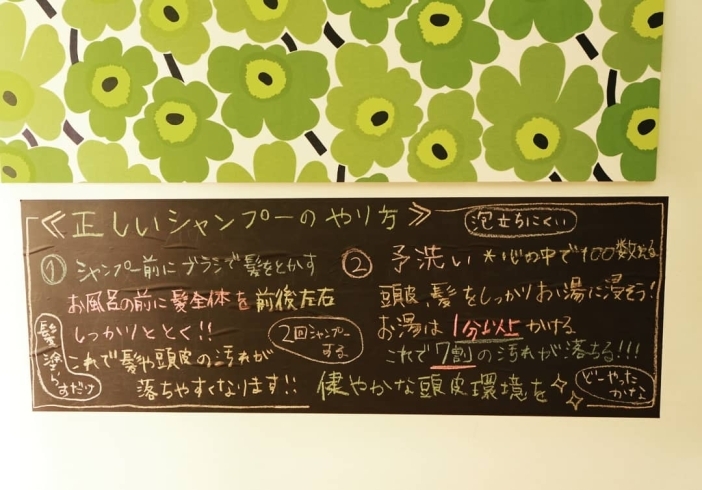 ≪正しいシャンプーのやり方≫
泡立ちにくい
① シャンプー前にブラシで髪をとかす
お風呂の前に髪全体を前後左右
しっかりととく!!
これで髪や頭皮の汚れが
落ちやすくなります!!
髪塗らすだけ
2回シャンプー
する
② 予洗い *心の中で100数える
頭皮、髪をしっかりお湯に浸そう!
お湯は1分以上かける
これで7割の汚れが落ちる!!!
健やかな頭皮環境を
どーやった
かな